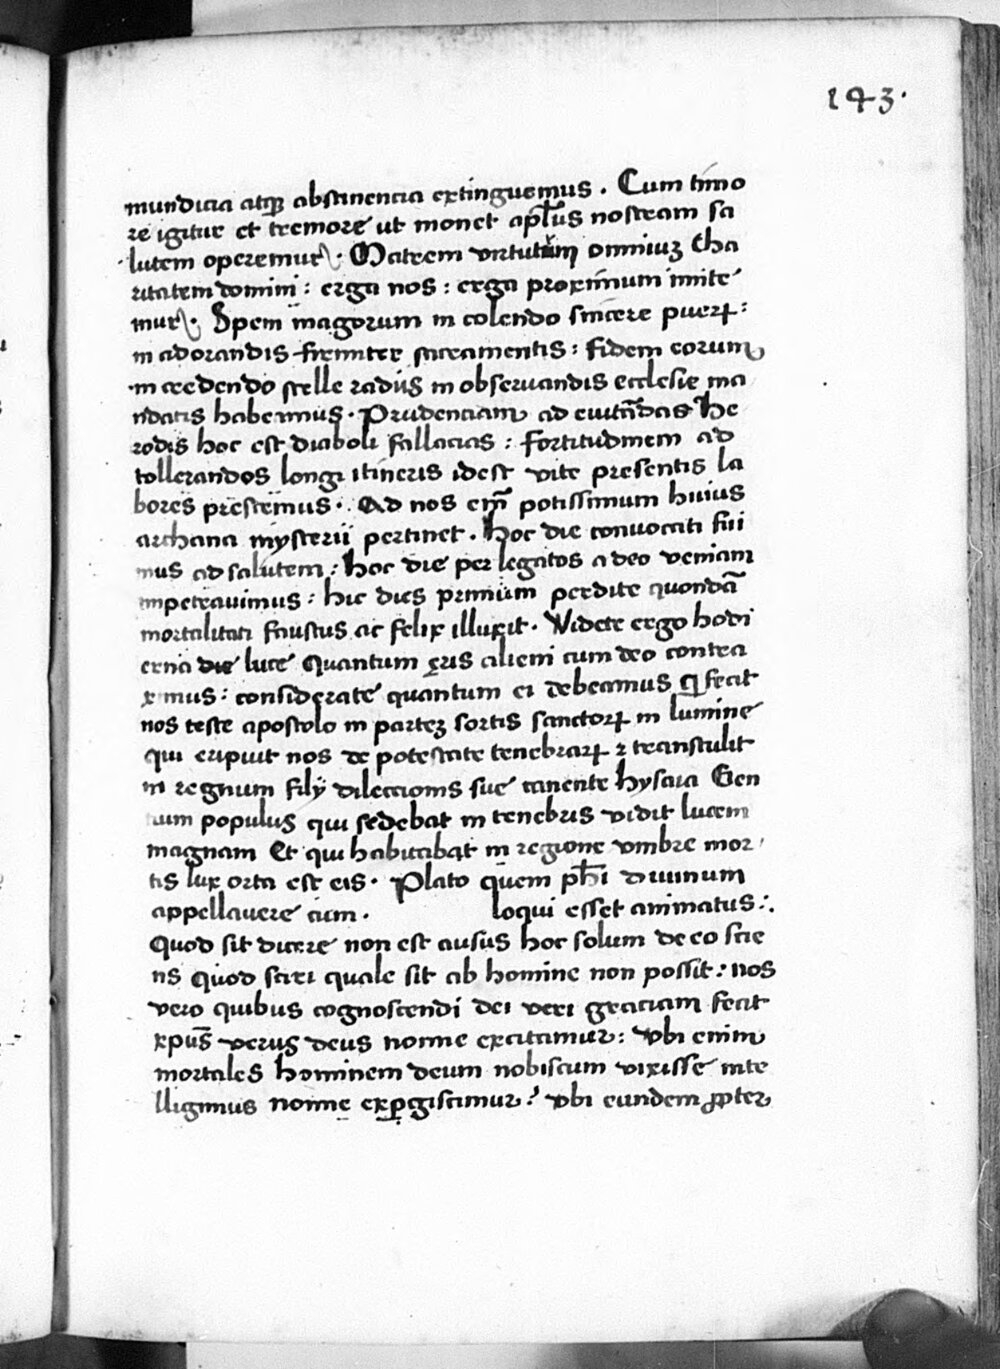 143.
mundicia atqꝫ abstinencia extinguemus. Cum timo
re igitur et tremore ut monet apl̄us nostram sa
lutem operemur. Matrem virtutum omniuꝫ Cha
ritatem domini: erga nos: erga proximum imite
mur. Spem magorum in colendo sincere pueꝝ:
in adorandis firmiter sacramentis: fidem eorum
in credendo stelle radiis in observandis ecclesie ma
ndatis habeamus. Prudenciam ad evitādas He
rodis hoc est diaboli fallacias: fortitudinem ad
tollerandos longi itineris idest vite presentis la
bores prestemus. Ad nos em̄ potissimum huius
archana mysterii pertinet. Hoc die convocati fui
mus ad salutem: hoc die per legatos a deo veniam
impetravimus: hic dies primum perdite quondā
mortalitati faustus ac felix illuxit. Videte ergo hodi
erna die luce quantum eris alieni cum deo contra
ximus: considerate quantum ei debeamus q fecit
nos teste apostolo in parteꝫ sortis sanctoꝝ in lumine
qui eripuit nos de potestate tenebraꝝ ⁊ transtulit
in regnum filij dileccionis sue canente hysaia Gen
tium populus qui sedebat in tenebris vidit lucem
magnam Et qui habitabat in regione umbre mor
tis lux orta est eis. Plato quem ph̄i divinum
appellavere cum. loqui esset animatus:.
Quod sit dicere non est ausus hoc solum de eo scie
ns quod sciri quale sit ab homine non possit: nos
vero quibus cognoscendi dei veri graciam fecit
xpūs verus deus nonne excitamur: Vbi enim
mortales hominem deum nobiscum vixisse inte
lligimus nonne exꝑgiscimur? vbi eundem ꝓpter